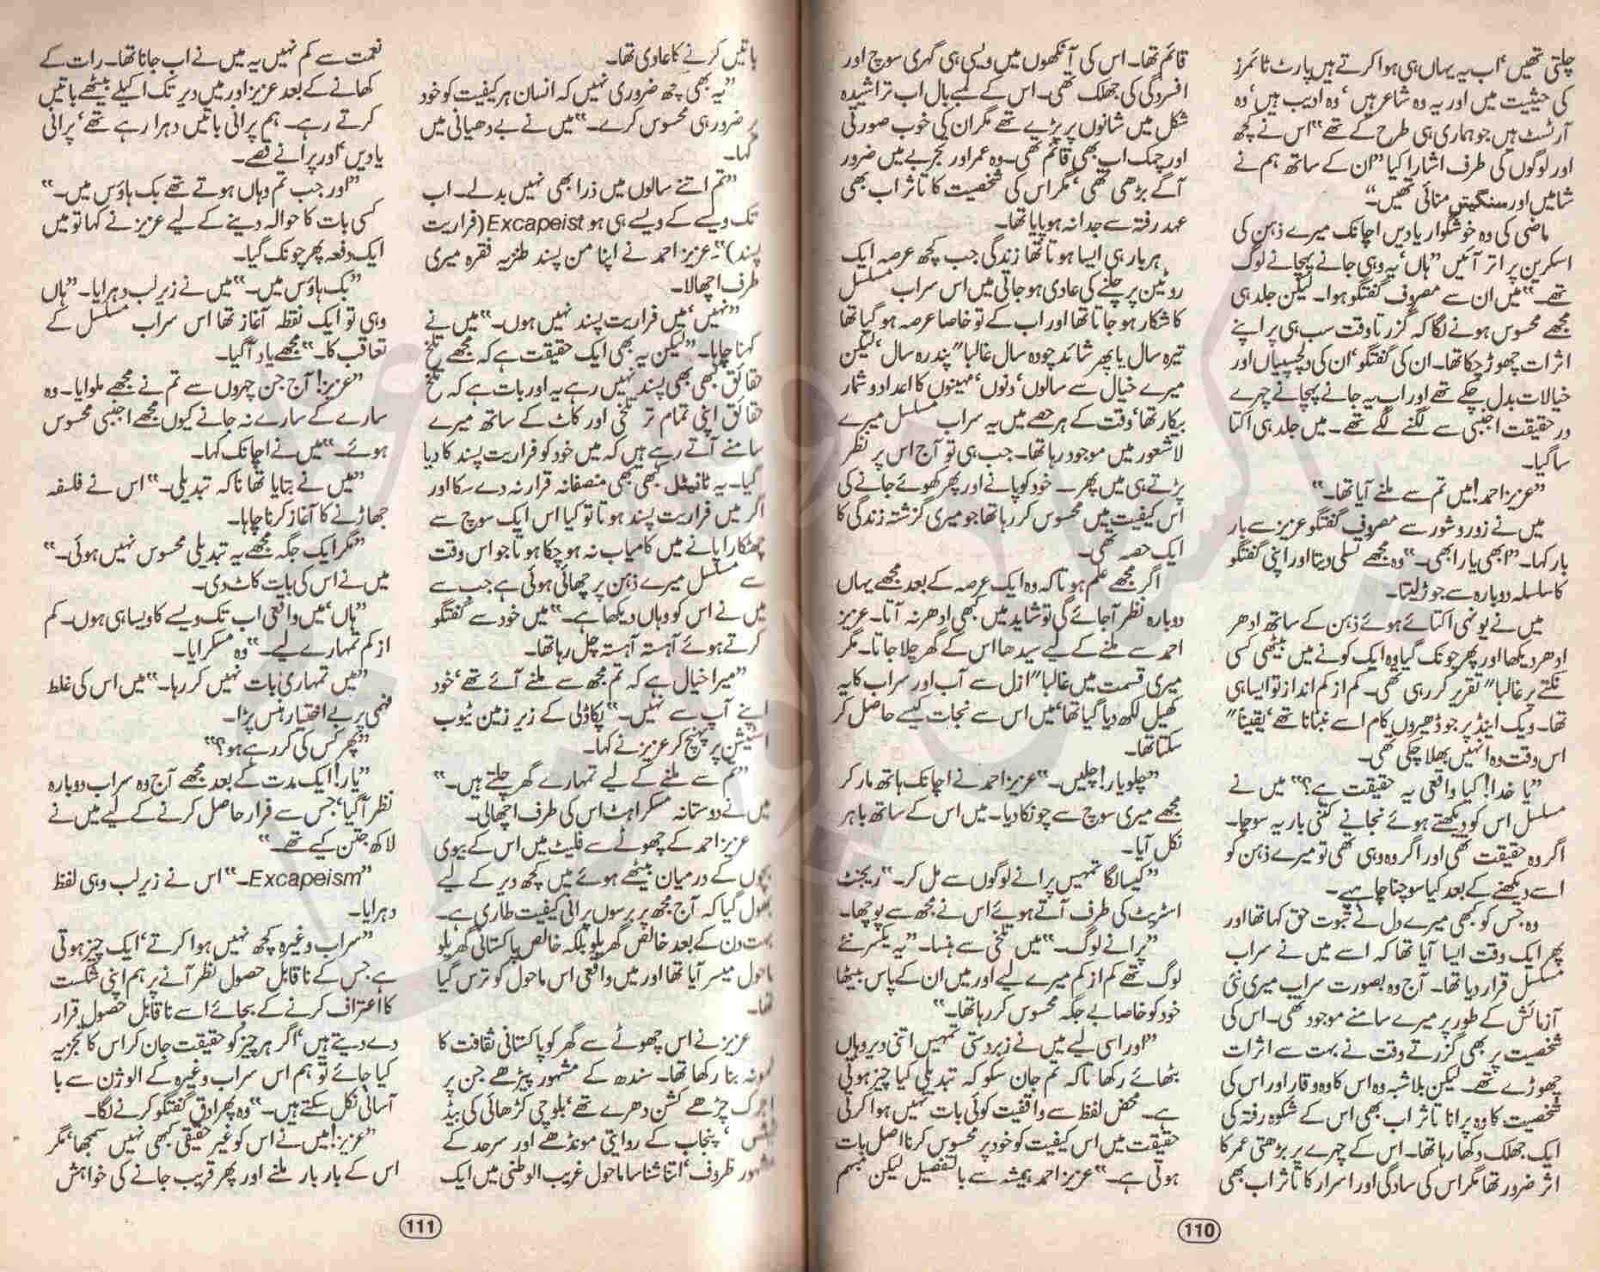 چلتی تھیں‘ اب یہ یہاں ہی ہوا کرتے ہیں پارٹ ٹائمرز
کی حیثیت میں اور یہ وہ شاعر ہیں‘ وہ ادیب ہیں‘ وہ
آرٹسٹ ہیں جو ہماری ہی طرح کے تھے“ اس نے کچھ
اور لوگوں کی طرف اشارا کیا ”ان کے ساتھ ہم نے
شامیں اور سنگیتیں منائی تھیں۔“
ماضی کی وہ خوشگوار یادیں اچانک میرے ذہن کی
اسکرین پر اتر آئیں ”ہاں‘ یہ وہی جانے پہچانے لوگ
تھے۔“ میں ان سے مصروف گفتگو ہوا۔ لیکن جلد ہی
مجھے محسوس ہونے لگا کہ گزرتا وقت سب ہی پر اپنے
اثرات چھوڑ چکا تھا۔ ان کی گفتگو‘ ان کی دلچسپیاں اور
خیالات بدل چکے تھے اور اب یہ جانے پہچانے چہرے
در حقیقت اجنبی سے لگنے لگے تھے۔ میں جلد ہی اکتا
سا گیا۔
”عزیز احمد! میں تم سے ملنے آیا تھا۔“
میں نے زور و شور سے مصروف گفتگو عزیز سے بار
بار کہا۔ ”ابھی یار ابھی۔“ وہ مجھے تسلی دیتا اور اپنی گفتگو
کا سلسلہ دوبارہ سے جوڑ لیتا۔
میں نے یونہی اکتائے ہوئے ذہن کے ساتھ ادھر
ادھر دیکھا اور پھر چونک گیا وہ ایک کونے میں بیٹھی کسی
نکتے پر غالبا“ تقریر کر رہی تھی۔ کم از کم انداز تو ایسا ہی
تھا۔ ویک اینڈ پر جو ڈھیروں کام اسے نمٹانا تھے‘ یقینا“
اس وقت وہ انہیں بھلا چکی تھی۔
”یا خدا! کیا واقعی یہ حقیقت ہے؟“ میں نے
مسلسل اس کو دیکھتے ہوئے نجانے کتنی بار یہ سوچا۔
اگر وہ حقیقت تھی اور اگر وہ وہی تھی تو میرے ذہن کو
اسے دیکھنے کے بعد کیا سوچنا چاہیے۔
وہ جس کو کبھی میرے دل نے ثبوت حق کہا تھا اور
پھر ایک وقت ایسا آیا تھا کہ اسے میں نے سراب
مسلسل قرار دیا تھا۔ آج وہ بصورت سراب میری نئی
آزمائش کے طور پر میرے سامنے موجود تھی۔ اس کی
شخصیت پر بھی گزرتے وقت نے بہت سے اثرات
چھوڑے تھے۔ لیکن بلاشبہ وہ اس کا وہ وقار اور اس کی
شخصیت کا وہ پرانا تاثر اب بھی اس کے شکوہ رفتہ کی
ایک جھلک دکھا رہا تھا۔ اس کے چہرے پر بڑھتی عمر کا
اثر ضرور تھا مگر اس کی سادگی اور اسرار کا تاثر اب بھی
قائم تھا۔ اس کی آنکھوں میں ویسی ہی گہری سوچ اور
افسردگی کی جھلک تھی۔ اس کے لمبے بال اب تراشیدہ
شکل میں شانوں پر پڑے تھے مگر ان کی خوب صورتی
اور چمک اب بھی قائم تھی۔ وہ عمر اور تجربے میں ضرور
آگے بڑھی تھی‘ مگر اس کی شخصیت کا تاثر اب بھی
عہد رفتہ سے جدا نہ ہو پایا تھا۔
ہر بار ہی ایسا ہوتا تھا زندگی جب کچھ عرصہ ایک
روٹین پر چلنے کی عادی ہو جاتی میں اس سراب مسلسل
کا شکار ہو جاتا تھا اور اب کے تو خاصا عرصہ ہو گیا تھا
تیرہ سال یا پھر شائد چودہ سال غالبا“ پندرہ سال‘ لیکن
میرے خیال سے سالوں‘ دنوں‘ مہینوں کا اعداد و شمار
بیکار تھا‘ وقت کے ہر حصے میں یہ سراب مسلسل میرے
لاشعور میں موجود رہا تھا۔ جب ہی تو آج اس پر نظر
پڑتے ہی میں پھر۔ خود کو پانے اور پھر کھوئے جانے کی
اس کیفیت میں محسوس کر رہا تھا جو میری گزشتہ زندگی کا
ایک حصہ تھی۔
اگر مجھے علم ہوتا کہ وہ ایک عرصہ کے بعد مجھے یہاں
دوبارہ نظر آجائے گی تو شاید میں کبھی ادھر نہ آتا۔ عزیز
احمد سے ملنے کے لیے سیدھا اس کے گھر چلا جاتا۔ مگر
میری قسمت میں غالبا“ ازل سے آب اور سراب کا یہ
کھیل لکھ دیا گیا تھا‘ میں اس سے نجات کیسے حاصل کر
سکتا تھا۔
”چلو یار! چلیں۔“ عزیز احمد نے اچانک ہاتھ مار کر
مجھے میری سوچ سے چونکا دیا۔ میں اس کے ساتھ باہر
نکل آیا۔
”کیسا لگا تمہیں پرانے لوگوں سے مل کر۔“ ریجنٹ
اسٹریٹ کی طرف آتے ہوئے اس نے مجھ سے پوچھا۔
”پرانے لوگ۔“ میں تلخی سے ہنسا۔ ”یہ یکسر نئے
لوگ تھے کم از کم میرے لیے اور میں ان کے پاس بیٹھا
خود کو خاصا بے جگہ محسوس کر رہا تھا۔“
”اور اسی لیے میں نے زبردستی تمہیں اتنی دیر وہاں
بٹھائے رکھا تاکہ تم جان سکو کہ تبدیلی کیا چیز ہوتی
ہے۔ محض لفظ سے واقفیت کوئی بات نہیں ہوا کرتی
حقیقت میں اس کیفیت کو خود پر محسوس کرنا اصل بات
ہوتی ہے۔“ عزیز احمد ہمیشہ سے بالتفصیل لیکن مبہم
110
باتیں کرنے کا عادی تھا۔
”یہ بھی کچھ ضروری نہیں کہ انسان ہر کیفیت کو خود
پر ضرور ہی محسوس کرے۔“ میں نے بے دھیانی میں
کہا۔
”تم اتنے سالوں میں ذرا بھی نہیں بدلے۔ اب
تک ویسے کے ویسے ہی ہو Excapeist (فراریت
پسند)“۔ عزیز احمد نے اپنا من پسند طنزیہ فقرہ میری
طرف اچھالا۔
”نہیں‘ میں فراریت پسند نہیں ہوں۔“ میں نے
کہنا چاہا۔ ”لیکن یہ بھی ایک حقیقت ہے کہ مجھے تلخ
حقائق کبھی بھی پسند نہیں رہے یہ اور بات ہے کہ تلخ
حقائق اپنی تمام تر تلخی اور کاٹ کے ساتھ میرے
سامنے آتے رہے ہیں کہ میں خود کو فراریت پسند کا دیا
گیا۔ یہ ٹائیٹل کبھی بھی منصفانہ قرار نہ دے سکا اور
اگر میں فراریت پسند ہوتا تو کیا اس ایک سوچ سے
چھٹکارا پانے میں کامیاب نہ ہو چکا ہوتا جو اس وقت
سے مسلسل میرے ذہن پر چھائی ہوئی ہے جب سے
میں نے اس کو وہاں دیکھا ہے۔“ میں خود سے گفتگو
کرتے ہوئے آہستہ آہستہ چل رہا تھا۔
”میرا خیال ہے کہ تم مجھ سے ملنے آئے تھے‘ خود
اپنے آپ سے نہیں۔“ پکاڈلی کے زیر زمین ٹیوب
اسٹیشن پر پہنچ کر عزیز نے کہا۔
”تم سے ملنے کے لیے تمہارے گھر چلتے ہیں۔“
میں نے دوستانہ مسکراہٹ اس کی طرف اچھالی۔
عزیز احمد کے چھوٹے سے فلیٹ میں اس کے بیوی
بچوں کے درمیان بیٹھے ہوئے میں کچھ دیر کے لیے
بھول گیا کہ آج مجھ پر برسوں پرانی کیفیت طاری ہے۔
بہت دن کے بعد خالص گھریلو بلکہ خالص پاکستانی گھریلو
ماحول میسر آیا تھا اور میں واقعی اس ماحول کو ترس گیا
تھا۔
عزیز نے اس چھوٹے سے گھر کو پاکستانی ثقافت کا
نمونہ بنا رکھا تھا۔ سندھ کے مشہور پیڑھے جن پر
اجرک چڑھے کشن دھرے تھے‘ بلوچی کڑھائی کی بیڈ
‘ پنجاب کے روایتی مونڈھے اور سرحد کے
مشہور ظروف‘ اتنا شناسا ماحول غریب الوطنی میں ایک
نعمت سے کم نہیں یہ میں نے اب جانا تھا۔ رات کے
کھانے کے بعد عزیز اور میں دیر تک اکیلے بیٹھے باتیں
کرتے رہے۔ ہم پرانی باتیں دہرا رہے تھے‘ پرانی
یادیں‘ اور پرانے قصے۔
”اور جب تم وہاں ہوتے تھے بک ہاؤس میں۔“
کسی بات کا حوالہ دینے کے لیے عزیز نے کہا تو میں
ایک دفعہ پھر چونک گیا۔
”بک ہاؤس میں۔“ میں نے زیر لب دہرایا۔ ”ہاں
وہی تو ایک نقطہ آغاز تھا اس سراب مسلسل کے
تعاقب کا۔“ مجھے یاد آگیا۔
”عزیز! آج جن چہروں سے تم نے مجھے ملوایا۔ وہ
سارے کے سارے نہ جانے کیوں مجھے اجنبی محسوس
ہوئے۔“ میں نے اچانک کہا۔
”میں نے بتایا تھا ناکہ تبدیلی۔“ اس نے فلسفہ
جھاڑنے کا آغاز کرنا چاہا۔
”مگر ایک جگہ مجھے یہ تبدیلی محسوس نہیں ہوئی۔“
میں نے اس کی بات کاٹ دی۔
”ہاں‘ میں واقعی اب تک ویسے کا ویسا ہی ہوں۔ کم
از کم تمہارے لیے۔“ وہ مسکرایا۔
”میں تمہاری بات نہیں کر رہا۔“ میں اس کی غلط
فہمی پر بے اختیار ہنس پڑا۔
”پھر کس کی کر رہے ہو؟“
”یار! ایک مدت کے بعد مجھے آج وہ سراب دوبارہ
نظر آگیا‘ جس سے فرار حاصل کرنے کے لیے میں نے
لاکھ جتن کیے تھے۔“
”Excapeism۔“ اس نے زیر لب وہی لفظ
دہرایا۔
”سراب وغیرہ کچھ نہیں ہوا کرتے‘ ایک چیز ہوتی
ہے جس کے ناقابل حصول نظر آنے پر ہم اپنی شکست
کا اعتراف کرنے کے بجائے اسے ناقابل حصول قرار
دے دیتے ہیں‘ اگر ہر چیز کو حقیقت جان کر اس کا تجزیہ
کیا جائے تو ہم اس سراب وغیرہ کے الوژن سے با
آسانی نکل سکتے ہیں۔“ وہ پھر ادق گفتگو کرنے لگا۔
”عزیز! میں نے اس کو غیر حقیقی کبھی نہیں سمجھا‘ مگر
اس کے بار بار ملنے اور پھر قریب جانے کی خواہش
111